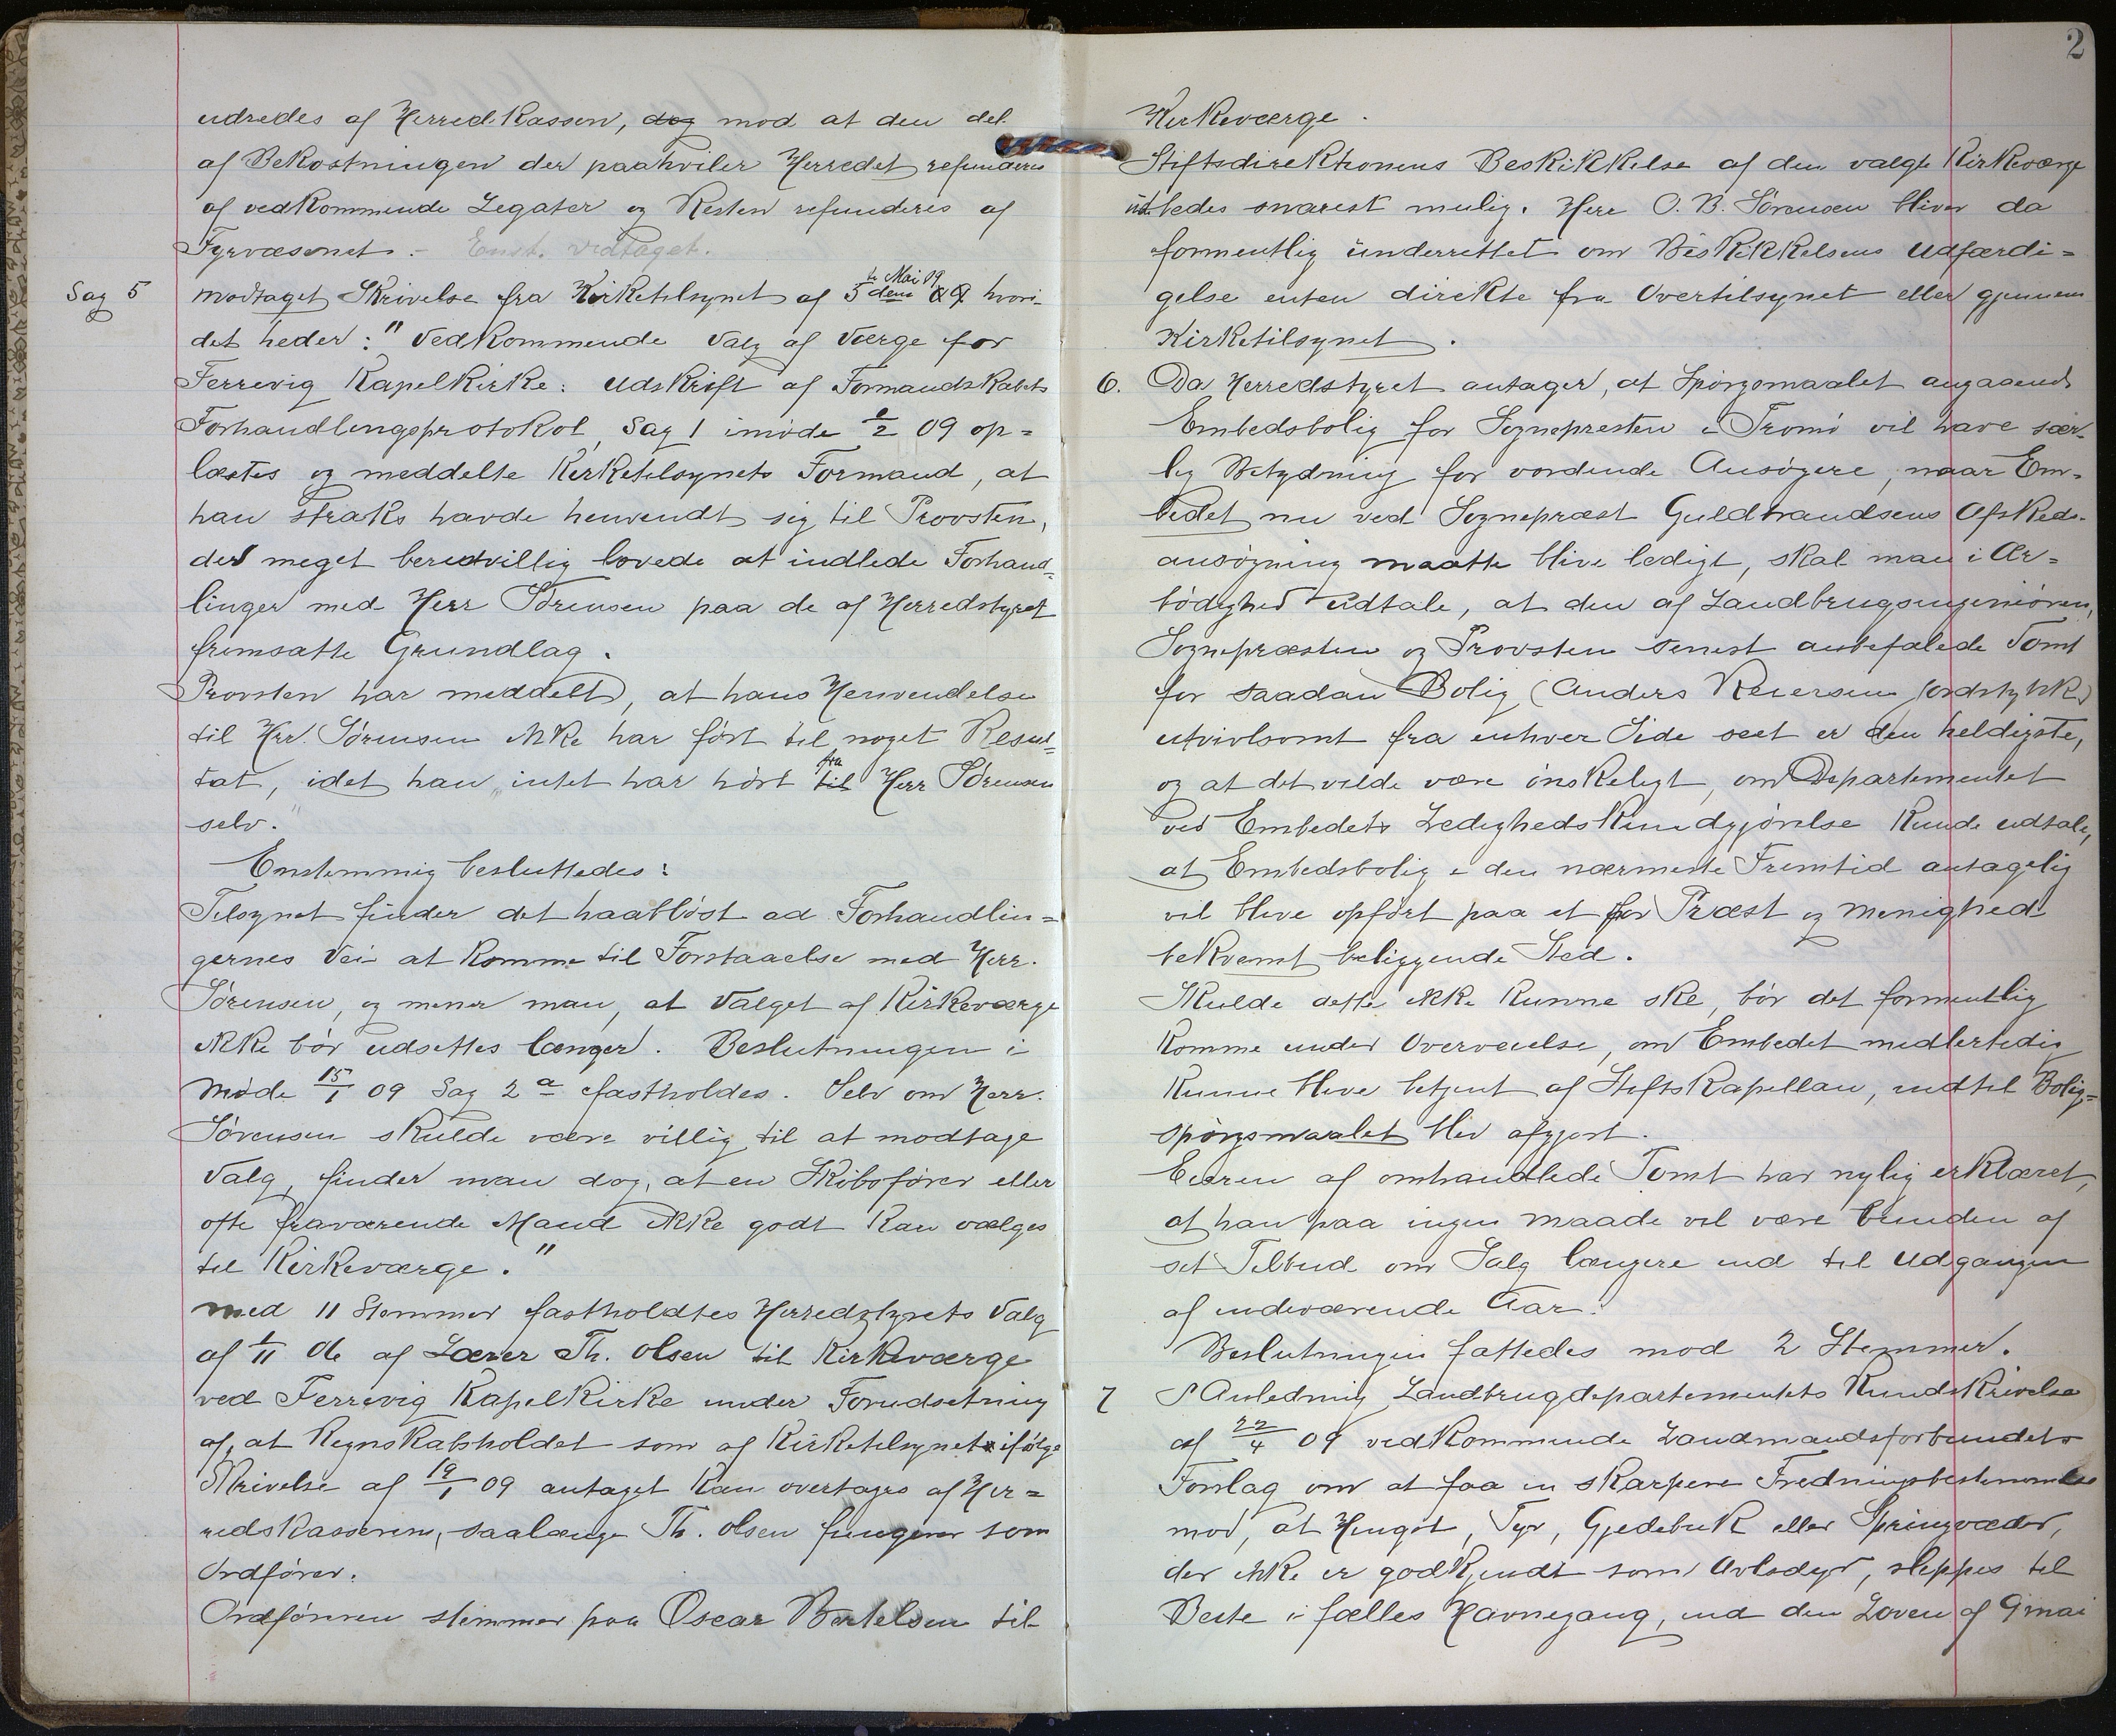 udredes af Herredskassen, dog mod at den del
af Bekostningen der paahviler Herredet refunderes
af vedkommende Legater og Resten refunderes af
Fyrvæsenet. - Enst. vedtaget.
Sag 5 modtaget Skrivelse fra Kirketilsynet af 5te dens Mai 09 09 hvori
det heder: "Vedkommende Valg af Værge for
Færvig Kapelkirke: Udskrift af Formandskabets
Forhandlingsprotokol, Sag 1 i møde 6/2 09 op=
læstes og meddelte Kirketilsynets Formand, at
han straks havde henvendt sig til Provsten,
der meget beredvillig lovede at indlede Forhand=
linger med Herr Sørensen paa de af Herredstyret
fremsatte Grundlag.
Provsten har meddelt, at hans Henvendelse
til Hrr. Sørensen ikke har ført til noget Resul=
tat, idet han "intet har hørt til fra Herr Sørensen
selv."
Enstemmig besluttedes:
Tilsynet finder det haabløst ad Forhandlin=
gernes Vei at komme til Forstaaelse med Herr.
Sørensen, og mener man, at Valget af Kirkeværge
ikke bør udsettes længer. Beslutningen i
Møde 15/1 09 Sag 2a fastholdes. Selv om Herr.
Sørensen skulde være villig til at modtage
Valg, finder man dog, at en Skibsfører eller
ofte fraværende Mand ikke godt kan vælges
til Kirkeværge."
med 11 Stemmer fastholdtes Herredstyrets Valg
af 1/11 06 af Lærer Th. Olsen til Kirkeværge
ved Færvig Kapelkirke under Forudsetning
af, at Regnskabsholdet som af Kirketilsynet ifølge
Skrivelse af 19/1 09 antaget kan overtages af Her=
redskassereren, saalænge Th. Olsen fungerer som
Ordfører.
Ordføreren stemmer paa Oscar Bertelsen til
2
Kirkeværge.
Stiftsdirektionens Beskikkelse af den valgte Kirkeværge
udbedes snarest mulig. Herr O. B. Sørensen bliver da
formentlig underrettet om Beskikkelsens Udfærdi=
gelse enten direkte fra Overtilsynet eller gjennem
Kirketilsynet.
6. Da Herredstyret antager, at Spørgsmaalet angaaende
Embedsbolig for Sognepresten i Tromø vil have sær=
lig Betydning for vordende Ansøgere, naar Em=
bedet nu ved Sogneprest Guldbrandsens Afskeds-
ansøgning maatte blive ledigt, skal man i Ær=
bødighed udtale, at den af Landbrugsingeniøren,
Sognepræsten og Provsten senest anbefalede Tomt
for saadan Bolig (Anders Reiersens Jordstykke)
utvivlsomt fra enhver Side seet er den heldigste,
og at det vilde være ønskeligt, om Departementet
ved Embedets Ledighedskundgjørelse kunde udtale,
at Embedsbolig i den nærmeste Fremtid antagelig
vil blive opført paa et for Præst og Menighed
bekvemt beliggende Sted.
Skulde dette ikke kunne ske, bør det formentlig
komme under Overveielse, om Embedet midlertidig
kunne blive betjent af Stiftskapellan, indtil Bolig=
spørgsmaalet blir afgjort.
Eieren af omhandlede Tomt har nylig erklæret,
at han paa ingen Maade vil være bunden af
sit Tilbud om Salg længere end til Udgangen
af indeværende Aar.
Beslutningen fattedes mod 2 Stemmer.
7 I Anledning Landbrugdepartementets Rundskrivelse
af 22/4 09 vedkommende Landmandsforbundets
Forslag om at faa en skarpere Fredningsbestemmelse
mod, at Hingst, Tyr, Gjedebuk eller Springvæder,
der ikke er godkjendt som Avlsdyr, slippes til
Beite i fælles Havnegang, end den Loven af 9 mai